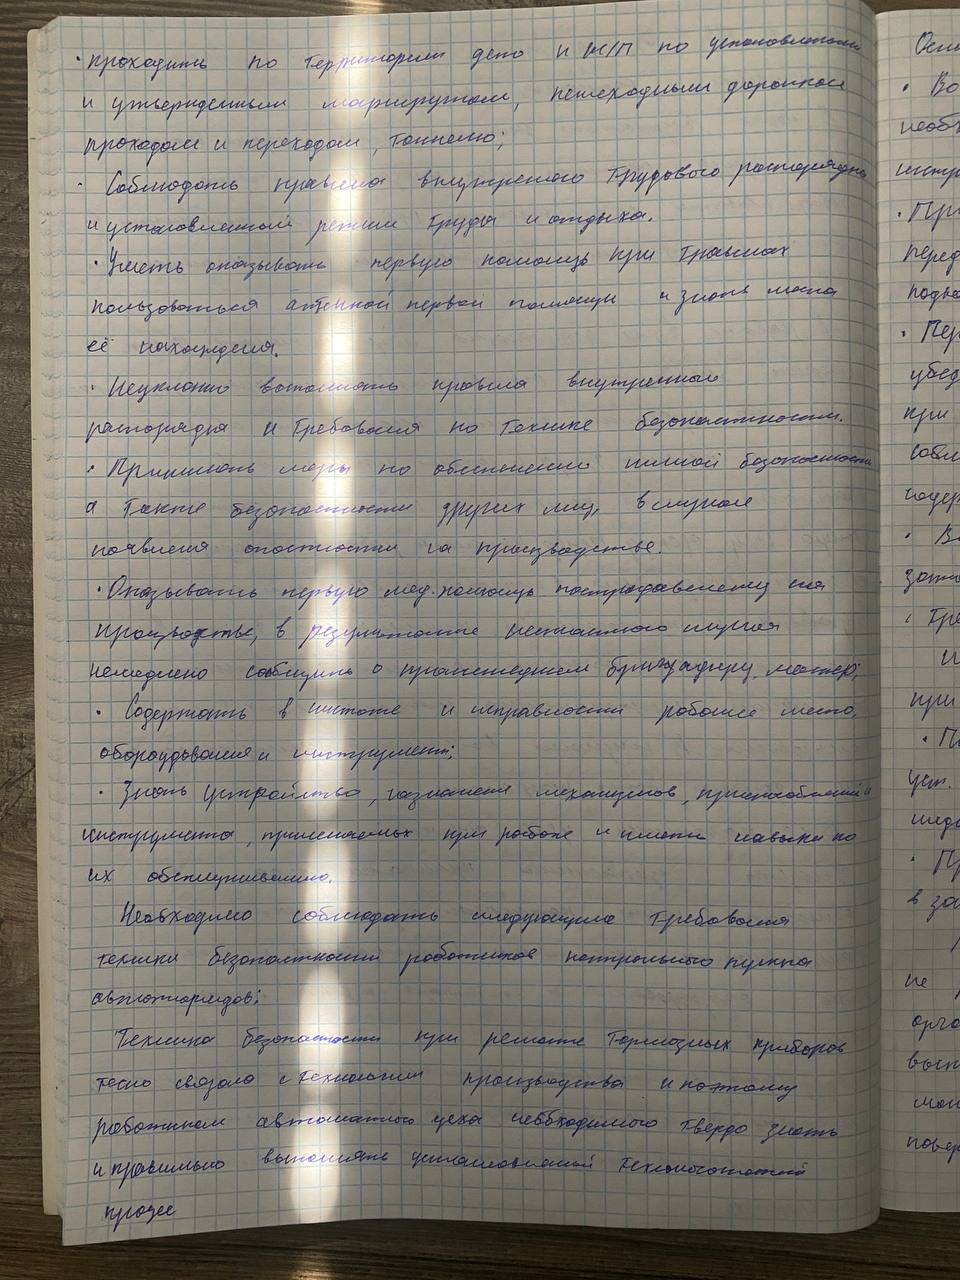 · проходить по территории депо и Ж/П по установленным
и утвержденным маршрутам, пешеходным дорожкам
проходам и переходам, тоннелю;
· Соблюдать правила внутренего трудового распорядка
и установленный режим труда и отдыха.
· Уметь оказывать первую помощь при травмах
пользоваться аптечкой первой помощи и знать места
её нахождения.
· Неуклонно выполнять правила внутреннего
распорядка и требования по технике безопасности.
· Принимать меры по обеспечению личной безопасности
а также безопасности других лиц, в случае
появления опасности на производстве.
· Оказывать первую мед. помощь пострадавшему на
производстве, в результате несчастного случая
немедлено сообщить о происшедшем бригадиру, мастеру;
· Содержать в чистоте и исправности рабочее место,
оборудования и инструмент;
· Знать устройство, назначения механизмов, приспособлений и
инструмента, применяемых при работе и иметь навыки по
их обслуживанию.
Необходимо соблюдать следующие требования
техники безопасности работников контрольного пункта
автотормозов:
Техника безопасности при ремонте тормозных приборов
тесно связана с технологией производства и поэтому
работникам автоматного цеха необходимого твердо знать
и правильно выполнять установленный технологический
процес
Осн
· Во
необ
инстр
· При
перед
· Пер
убед
при
собл
· В
при
· П
уст.
· Пр
в за
не
орга
вып
повер